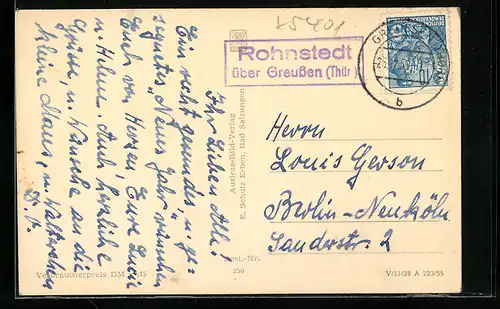 +5401
Ihr Lieben Alle!
Ein recht gesundes, u. ge-
segnetes "Neues Jahr" wünschen
Euch von Herzen Eure Lucie
u. Helm. Auch herzliche
Grüße, u. Wünsche an die
kleine Maus, u. Walterchen
D. O.
Verbraucherpreis DM
Auslese-Bild-Verlag
E. Schulz Erben, Bad Salzungen
Best.-Nr.
250
Rohnstedt
über Greußen (Thür)
b
Herrn
Louis Gerson
Berlin-Neukölln
Sanderstr. 2
V/11/28 A 223/55